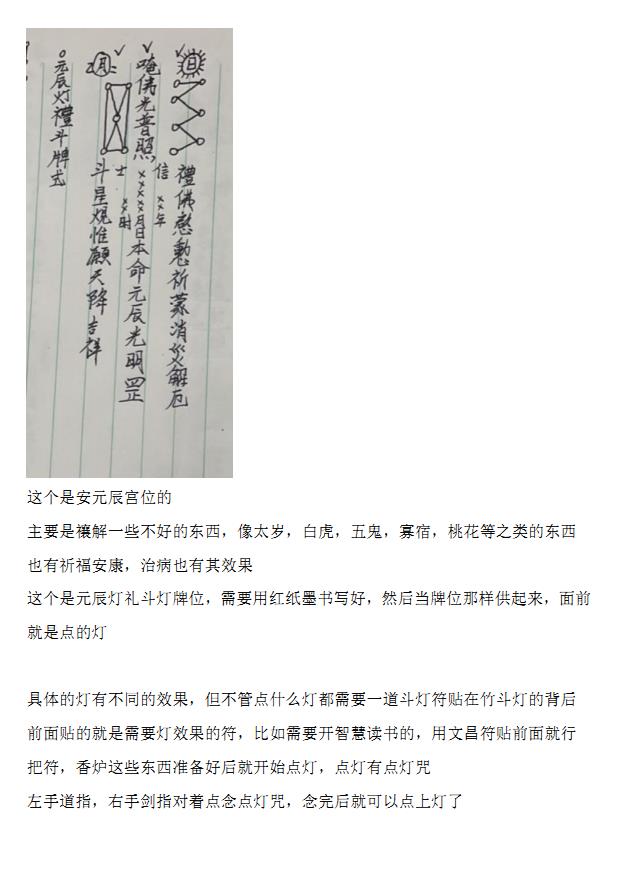 日
禮佛慇懃祈蒙消災解厄
唵佛光普照
信士
××××
××年
××月日
××时
本命元辰光明罡
月
斗星惟願天降吉祥
元辰灯禮斗牌式
这个是安元辰宫位的
主要是禳解一些不好的东西，像太岁，白虎，五鬼，寡宿，桃花等之类的东西
也有祈福安康，治病也有其效果
这个是元辰灯礼斗灯牌位，需要用红纸墨书写好，然后当牌位那样供起来，面前
就是点的灯
具体的灯有不同的效果，但不管点什么灯都需要一道斗灯符贴在竹斗灯的背后
前面贴的就是需要灯效果的符，比如需要开智慧读书的，用文昌符贴前面就行
把符，香炉这些东西准备好后就开始点灯，点灯有点灯咒
左手道指，右手剑指对着点念点灯咒，念完后就可以点上灯了